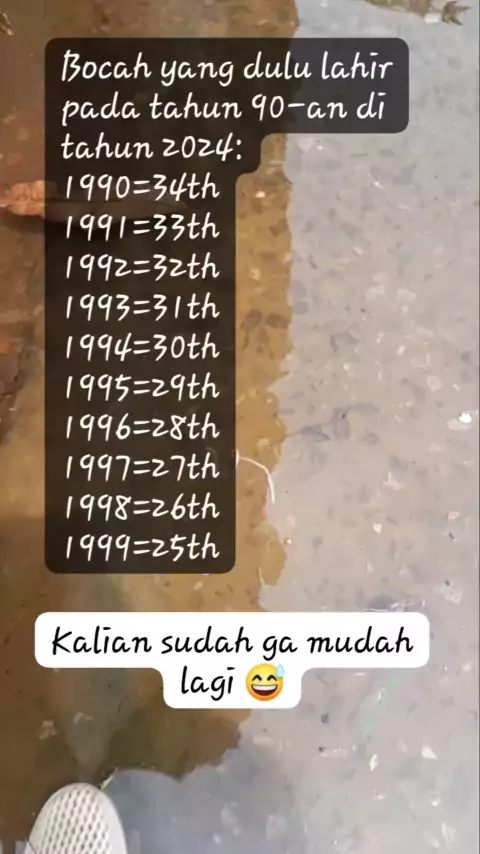 Bocah yang dulu lahir
pada tahun 90-an di
tahun 2024:
1990=34th
1991=33th
1992=32th
1993=31th
1994=30th
1995=29th
1996=28th
1997=27th
1998=26th
1999=25th
Kalian sudah ga mudah
lagi 😅